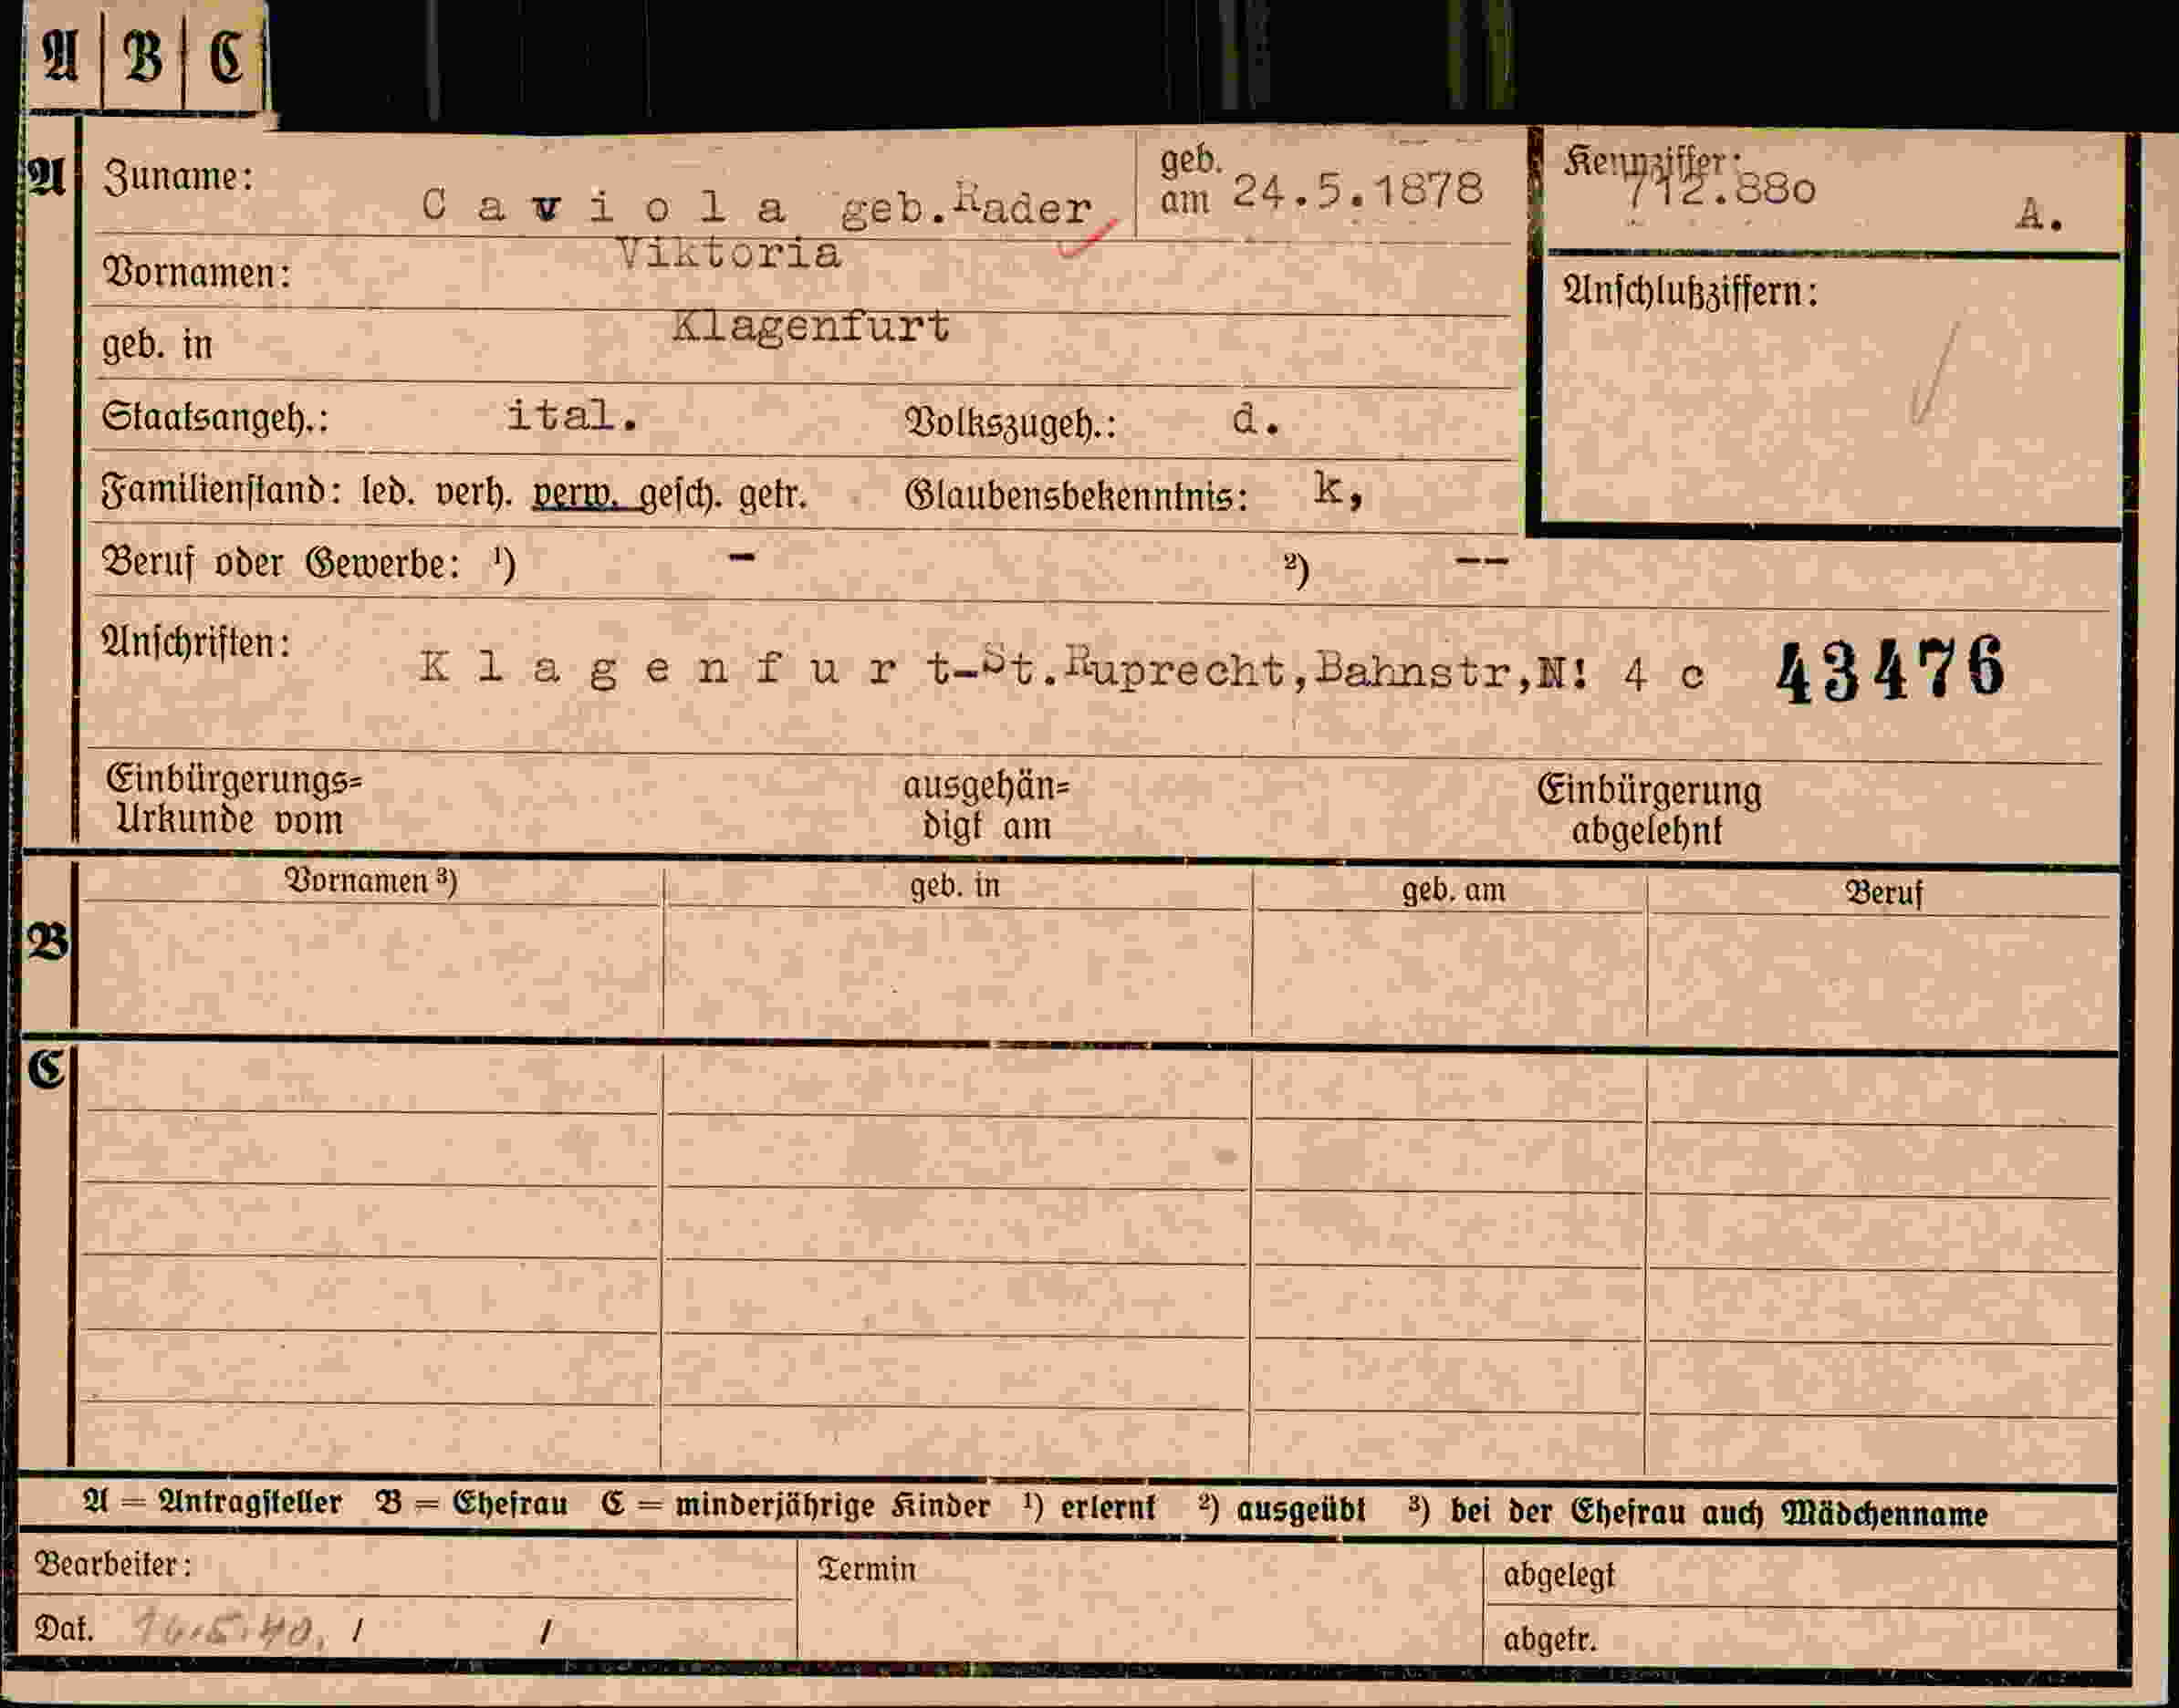 A | B | C
A Zuname: Caviola geb. Rader geb. am 24.5.1878 Kennziffer: 712.880 A.
Vornamen: Viktoria
Anschlußziffern:
geb. in Klagenfurt
Staatsangeh.: ital. Volkszugeh.: d.
Familienstand: led. verh. verw. gesch. getr. Glaubensbekenntnis: k,
Beruf oder Gewerbe: ¹) - ²) --
Anschriften: Klagenfurt-St.Ruprecht,Bahnstr,N! 4 c 43476
Einbürgerungs= ausgehän= Einbürgerung
Urkunde vom digt am abgelehnt
Vornamen ³) geb. in geb. am Beruf
B
C
A = Antragsteller B = Ehefrau C = minderjährige Kinder ¹) erlernt ²) ausgeübt ³) bei der Ehefrau auch Mädchenname
Bearbeiter: Termin abgelegt
Dat. 16.5.40. / / abgetr.